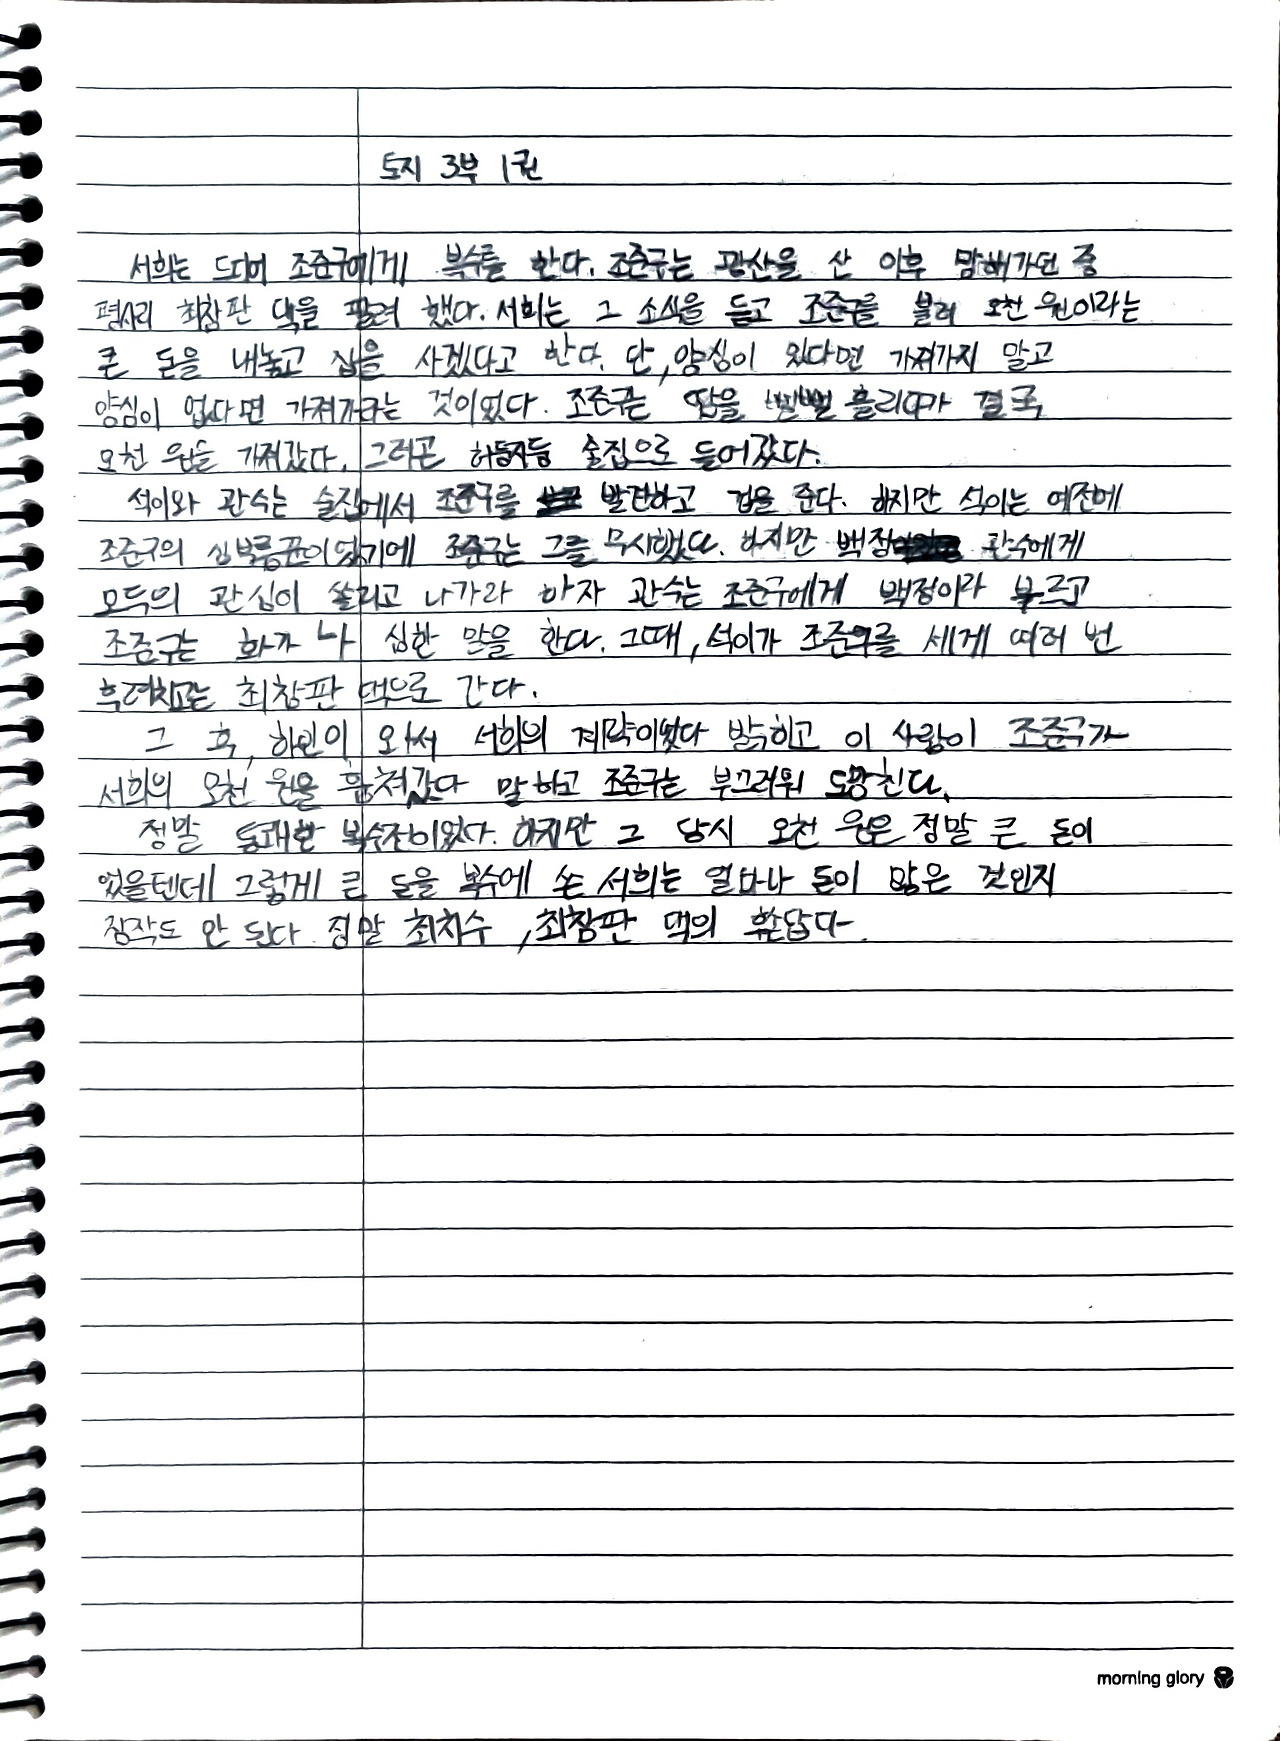 토지 3부 1권
서희는 드디어 조준구에게 복수를 한다. 조준구는 광산을 산 이후 망해가던 중
평사리 최참판 댁을 팔려 했다. 서희는 그 소식을 듣고 조준구를 불러 오천 원이라는
큰 돈을 내놓고 집을 사겠다고 한다. 단, 양심이 있다면 가져가지 말고
양심이 없다면 가져가라는 것이었다. 조준구는 땀을 뻘뻘 흘리다가 결국
오천 원을 가져갔다. 그러곤 허둥지둥 술집으로 들어갔다.
석이와 관수는 술집에서 조준구를 발견하고 겁을 준다. 하지만 석이는 예전에
조준구의 심부름꾼이었기에 조준구는 그를 무시했다. 하지만 백정 관수에게
모두의 관심이 쏠리고 나가라 하자 관수는 조준구에게 백정이라 부르고
조준구는 화가 나 심한 말을 한다. 그때, 석이가 조준구를 세게 여러 번
후려치고는 최참판 댁으로 간다.
그 후, 하인이 와서 서희의 계략이었다 밝히고 이 사람이 조준구가
서희의 오천 원을 훔쳐갔다 말하고 조준구는 부끄러워 도망친다.
정말 통쾌한 복수전이었다. 하지만 그 당시 오천 원은 정말 큰 돈이
었을텐데 그렇게 큰 돈을 복수에 쓴 서희는 얼마나 돈이 많은 것인지
짐작도 안 된다 정말 최치수, 최참판 댁의 답다.
morning glory